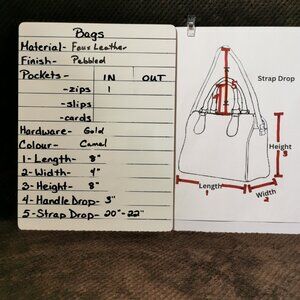 Bags
Material- Faux Leather
Finish- Pebbled
Pockets - IN OUT
-zips 1
-slips
-cards
Hardware- Gold
Colour- Camel
1-Length- 8"
2-Width- 4"
3-Height- 8"
4-Handle Drop- 3"
5-Strap Drop- 20"-22"
Strap Drop
Height
3
Length
1
Width
2